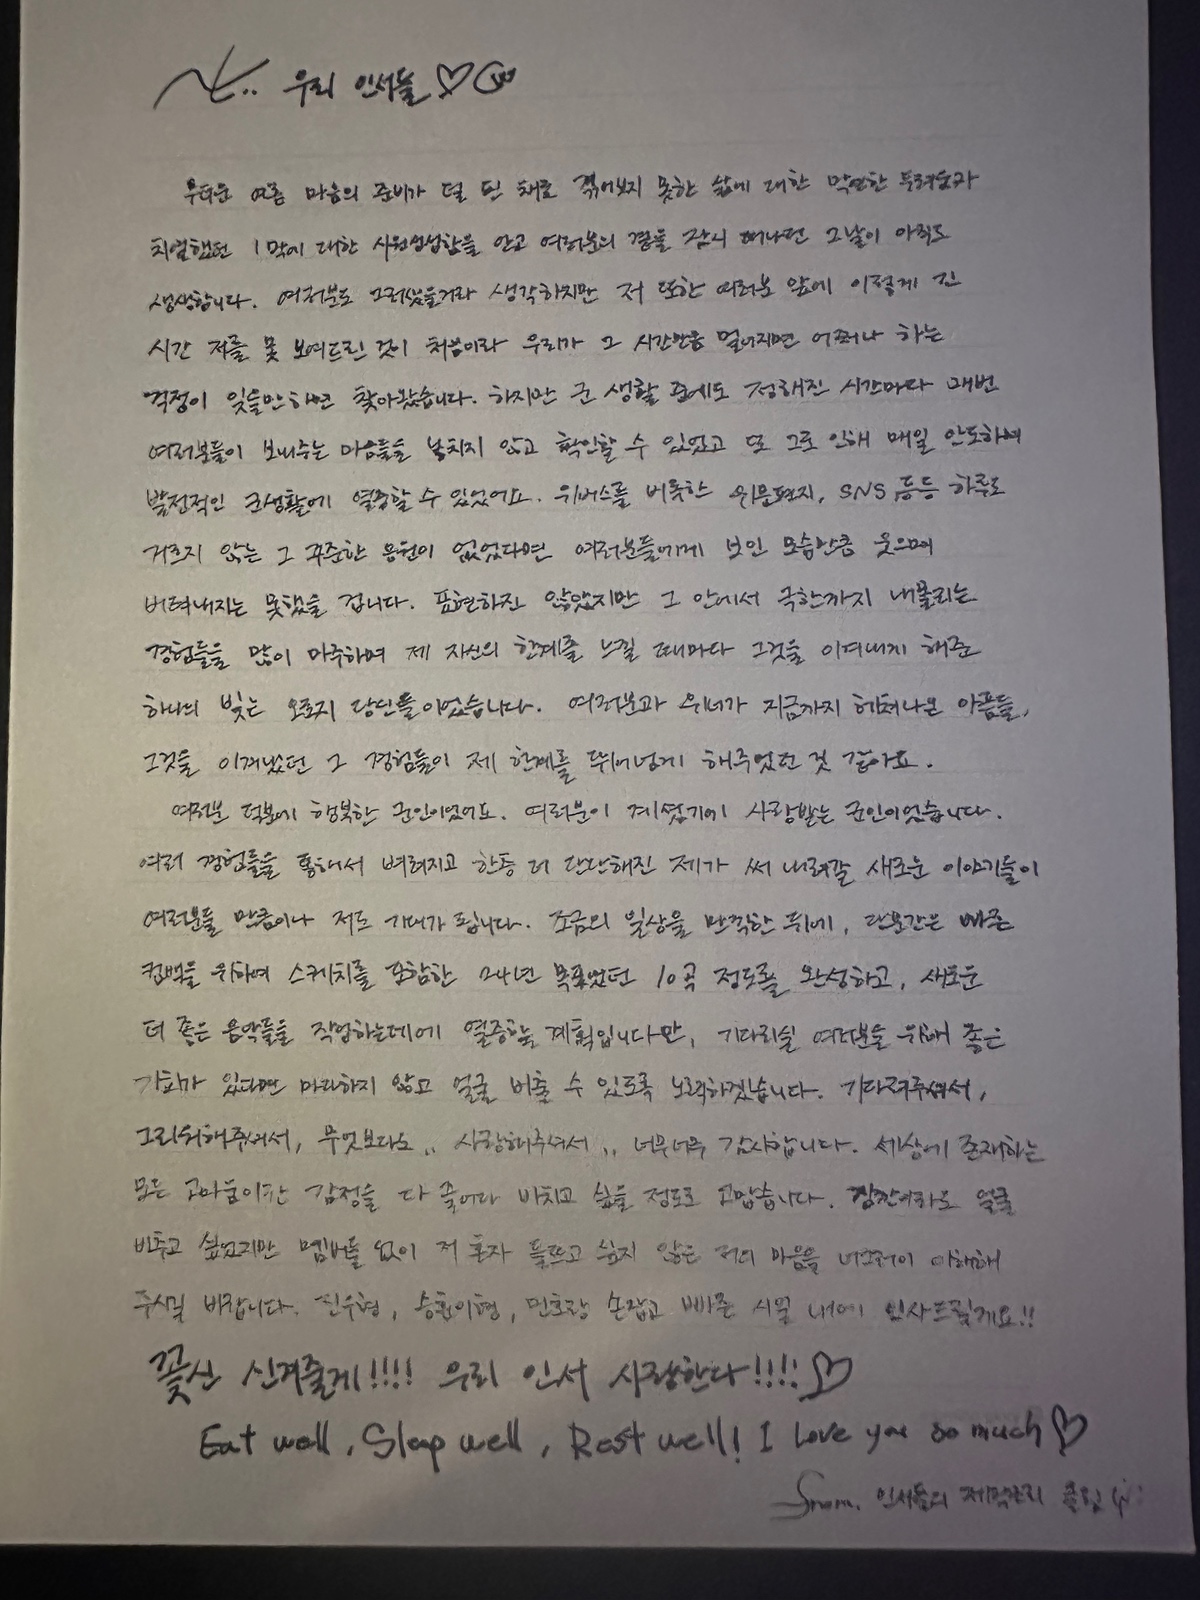 To.. 우리 인서들♡
무더운 여름 마음의 준비가 덜 된 채로 겪어보지 못한 삶에 대한 막연한 두려움과
치열했던 1막에 대한 시원섭섭함을 안고 여러분의 곁을 잠시 떠나던 그날이 아직도
생생합니다. 여러분도 그러셨을거라 생각하지만 저 또한 여러분 앞에 이렇게 긴
시간 저를 못 보여드린 것이 처음이라 우리가 그 시간만큼 멀어지면 어쩌나 하는
걱정이 잊을만하면 찾아왔습니다. 하지만 군 생활 중에도 정해진 시간마다 매번
여러분들이 보내주는 마음들을 놓치지 않고 확인할 수 있었고 또 그로 인해 매일 안도하며
발전적인 군생활에 열중할 수 있었어요. 위버스를 비롯한 위문편지, SNS 등등 하루도
거르지 않는 그 꾸준한 응원이 없었다면 여러분들에게 보인 모습만큼 웃으며
버텨내지는 못했을 겁니다. 표현하진 않았지만 그 안에서 극한까지 내몰리는
경험들을 많이 마주하며 제 자신의 한계를 느낄 때마다 그것을 이겨내게 해준
하나의 빛은 오로지 당신들이었습니다. 여러분과 위너가 지금까지 헤쳐나온 아픔들,
그것을 이겨냈던 그 경험들이 제 한계를 뛰어넘게 해주었던 것 같아요.
여러분 덕분에 행복한 군인이었어요. 여러분이 계셨기에 사랑받는 군인이었습니다.
여러 경험들을 통해서 벼려지고 한층 더 단단해진 제가 써 내려갈 새로운 이야기들이
여러분들 만큼이나 저도 기대가 됩니다. 조금의 일상을 만끽한 뒤에, 당분간은 빠른
컴백을 위하여 스케치를 포함한 24년 목표였던 10곡 정도를 완성하고, 새로운
더 좋은 음악들을 작업하는데에 열중할 계획입니다만, 기다리실 여러분을 위해 좋은
기회가 있다면 마다하지 않고 얼굴 비출 수 있도록 노력하겠습니다. 기다려주셔서,
그리워해주셔서, 무엇보다도.. 사랑해주셔서.. 너무너무 감사합니다. 세상에 존재하는
모든 고마움이란 감정을 다 끌어다 바치고 싶을 정도로 고맙습니다. 잠깐이라도 얼굴
비추고 싶었지만 멤버들 없이 저 혼자 들뜨고 싶지 않은 저의 마음을 너그러이 이해해
주시길 바랍니다. 진우형, 승훈이형, 민호랑 손잡고 빠른 시일 내에 인사드릴게요!!
꽃신 신겨줄게!!!! 우리 인서 사랑한다!!!!♡
Eat well, Sleep well, Rest well! I love you so much♡
From. 인서들의